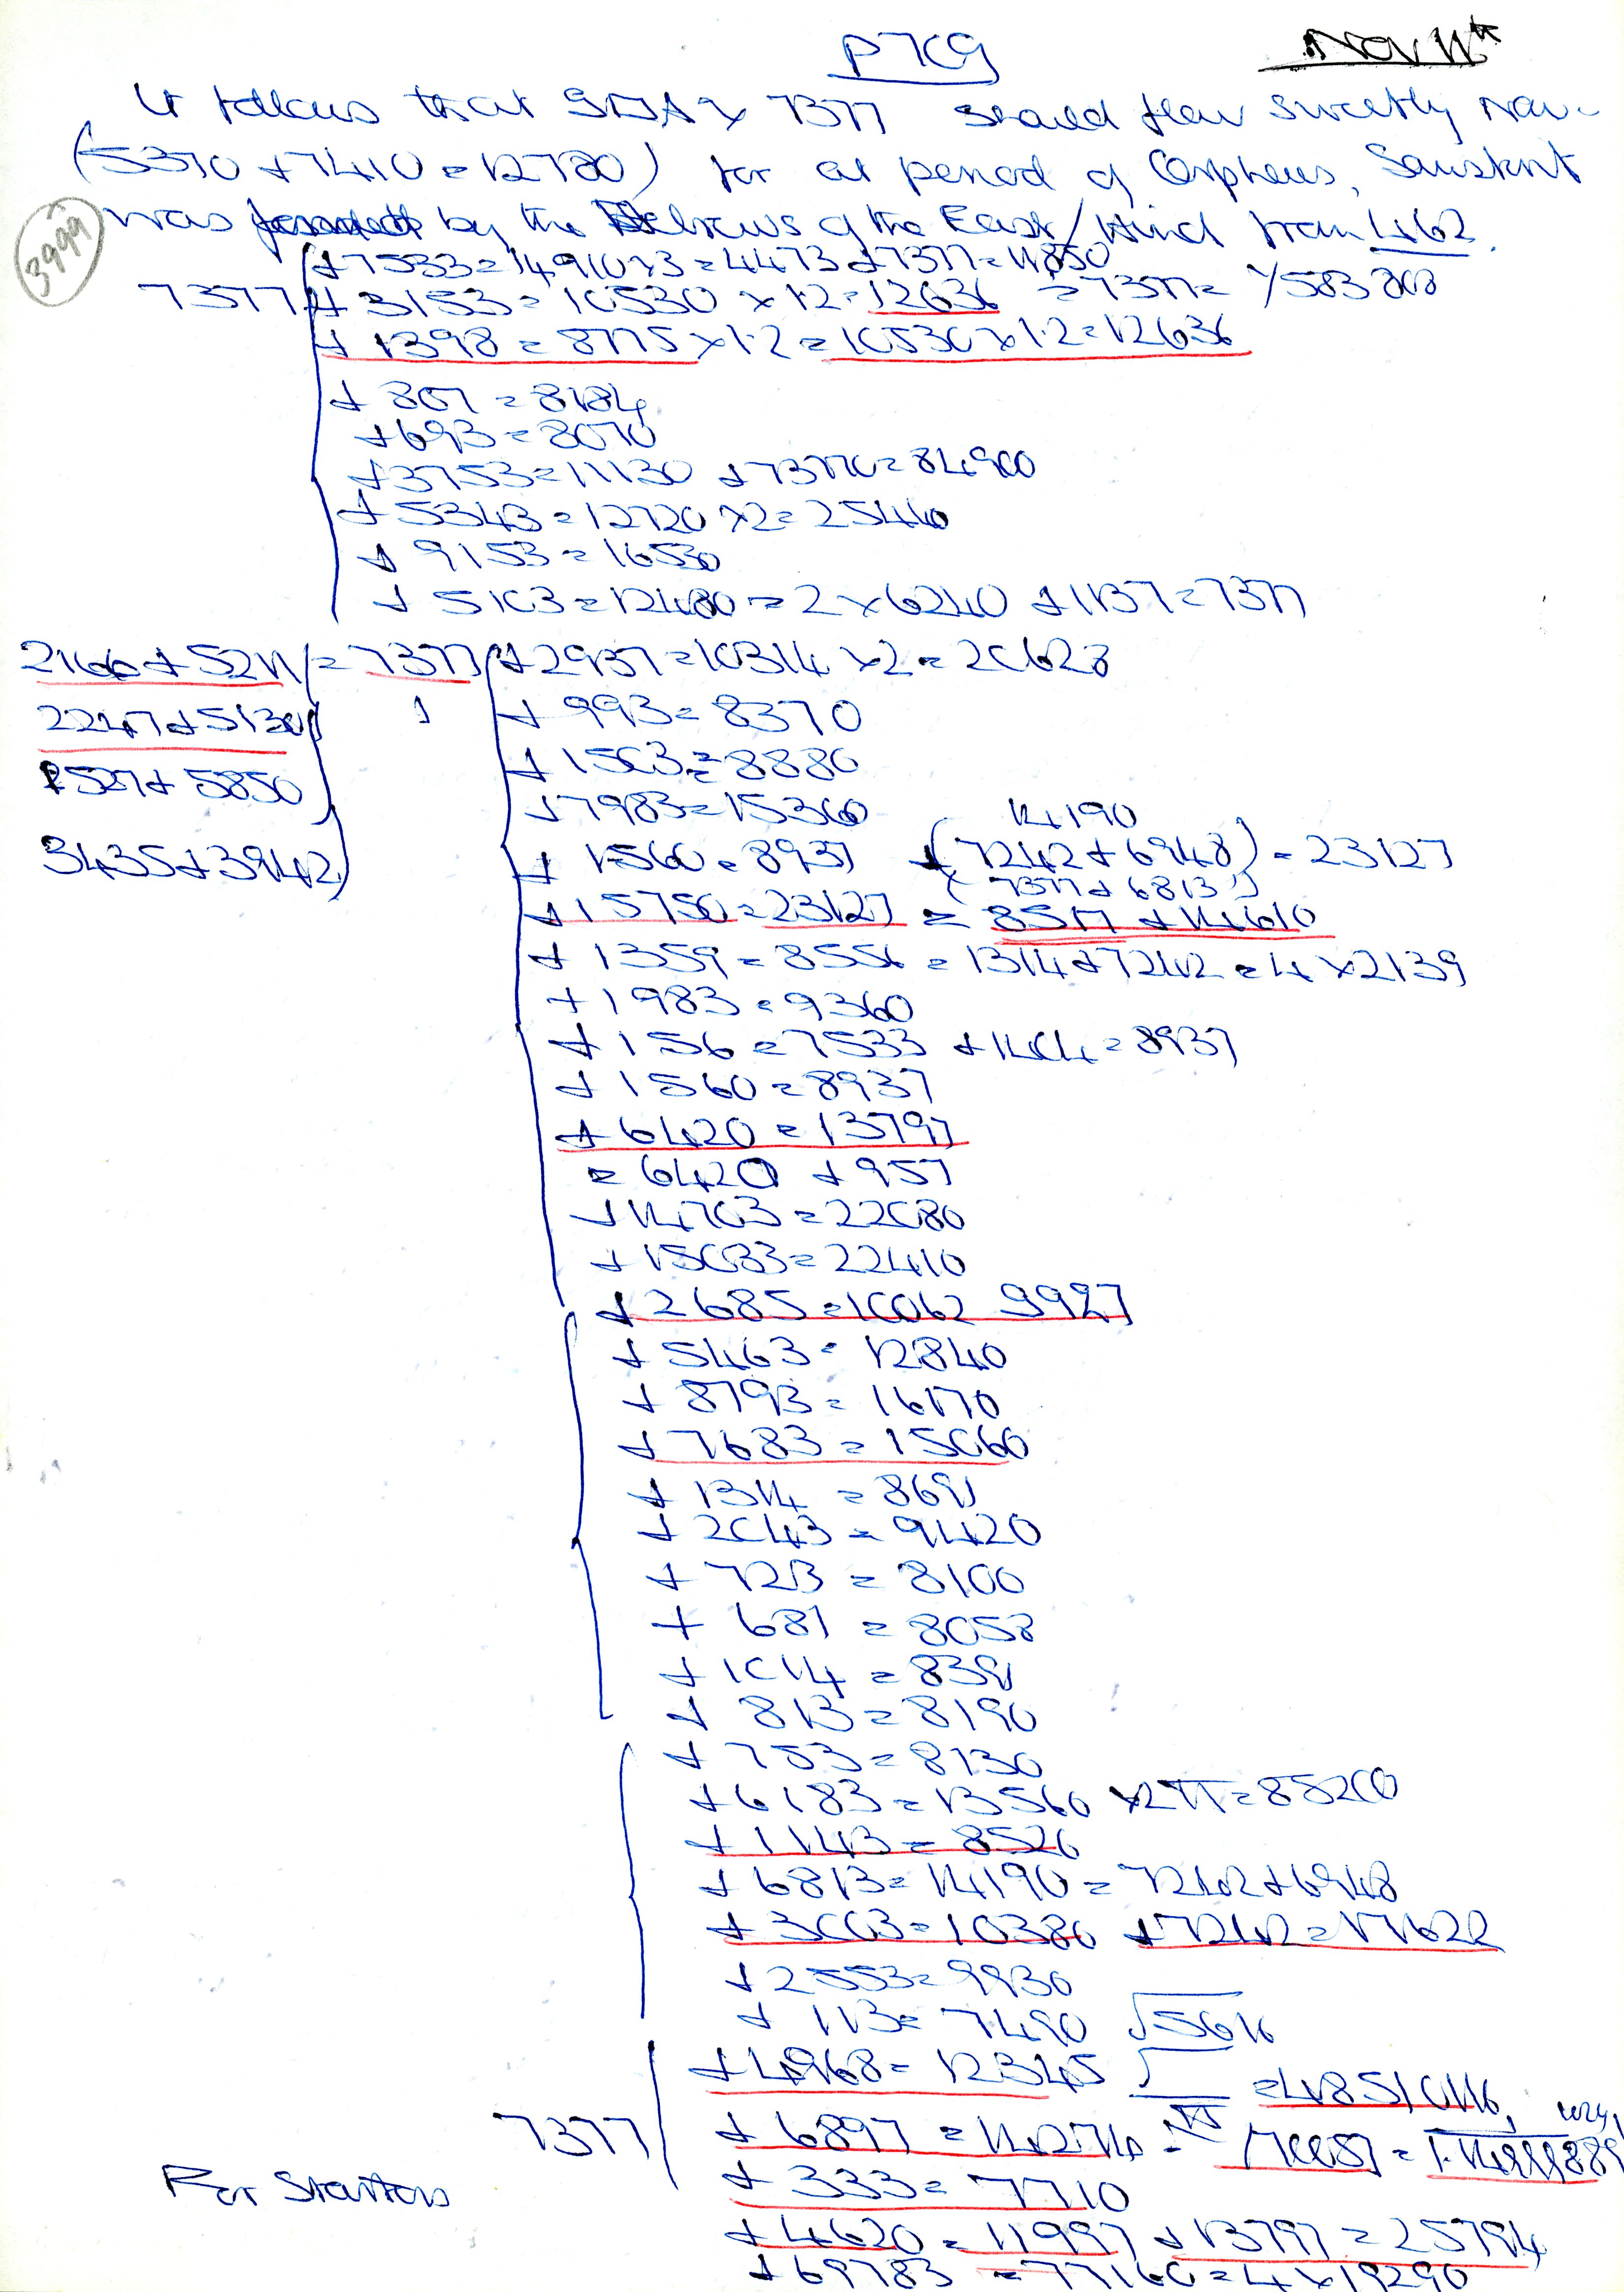 P7C9
Nov 11th
It follows that SDA x 7377 should flow sweetly now -
(5370 + 7410 = 12780) for at period of Orpheus, Sanskrit
was by the Hebrews of the East / Hind from 1462.
3999
+ 7533 = 14910 x 3 = 4473 + 7377 = 11850
7377 + 3153 = 10530 x 1.2 = 12636 ÷ 7377 = 1/583 808
+ 1398 = 8775 x 1.2 = 10530 x 1.2 = 12636
+ 807 = 8184
+ 693 = 8070
+ 3753 = 11130 + 73770 = 84900
+ 5343 = 12720 x 2 = 25440
+ 9153 = 16530
+ 5103 = 12480 = 2 x 6240 + 1137 = 7377
2166 + 5211 = 7377 + 2937 = 10314 x 2 = 20628
2247 + 5130 + 993 = 8370
+ 1503 = 8880
1527 + 5850 + 7983 = 15360
14190
3435 + 3942 + 1560 = 8937 + (7242 + 6948) = 23127
(7377 + 6813)
+ 15750 = 23127 = 8517 + 14610
+ 1359 = 8556 = 1314 + 7242 = 4 x 2139
+ 1983 = 9360
+ 156 = 7533 + 1404 = 8937
+ 1560 = 8937
+ 6420 = 13797
= 6420 + 957
+ 14703 = 22080
+ 15033 = 22410
+ 2685 = 10062 9927
+ 5463 = 12840
+ 8793 = 16170
+ 7683 = 15060
+ 1314 = 8691
+ 2043 = 9420
+ 723 = 8100
+ 681 = 8058
+ 1014 = 8391
+ 813 = 8190
+ 753 = 8130
+ 6183 = 13560 x 2π = 85200
+ 1143 = 8526
+ 6813 = 14190 = 7242 + 6948
+ 3003 = 10380 + 7242 = 17622
+ 2553 = 9930
+ 113 = 7490 √5616
+ 4968 = 12345 √ = 418510116
7377 + 6897 = 14274
+ 333 = 7710
For Starters
+ 4620 = 11997 + 13797 = 25794
+ 69783 = 77160 = 4 x 19290